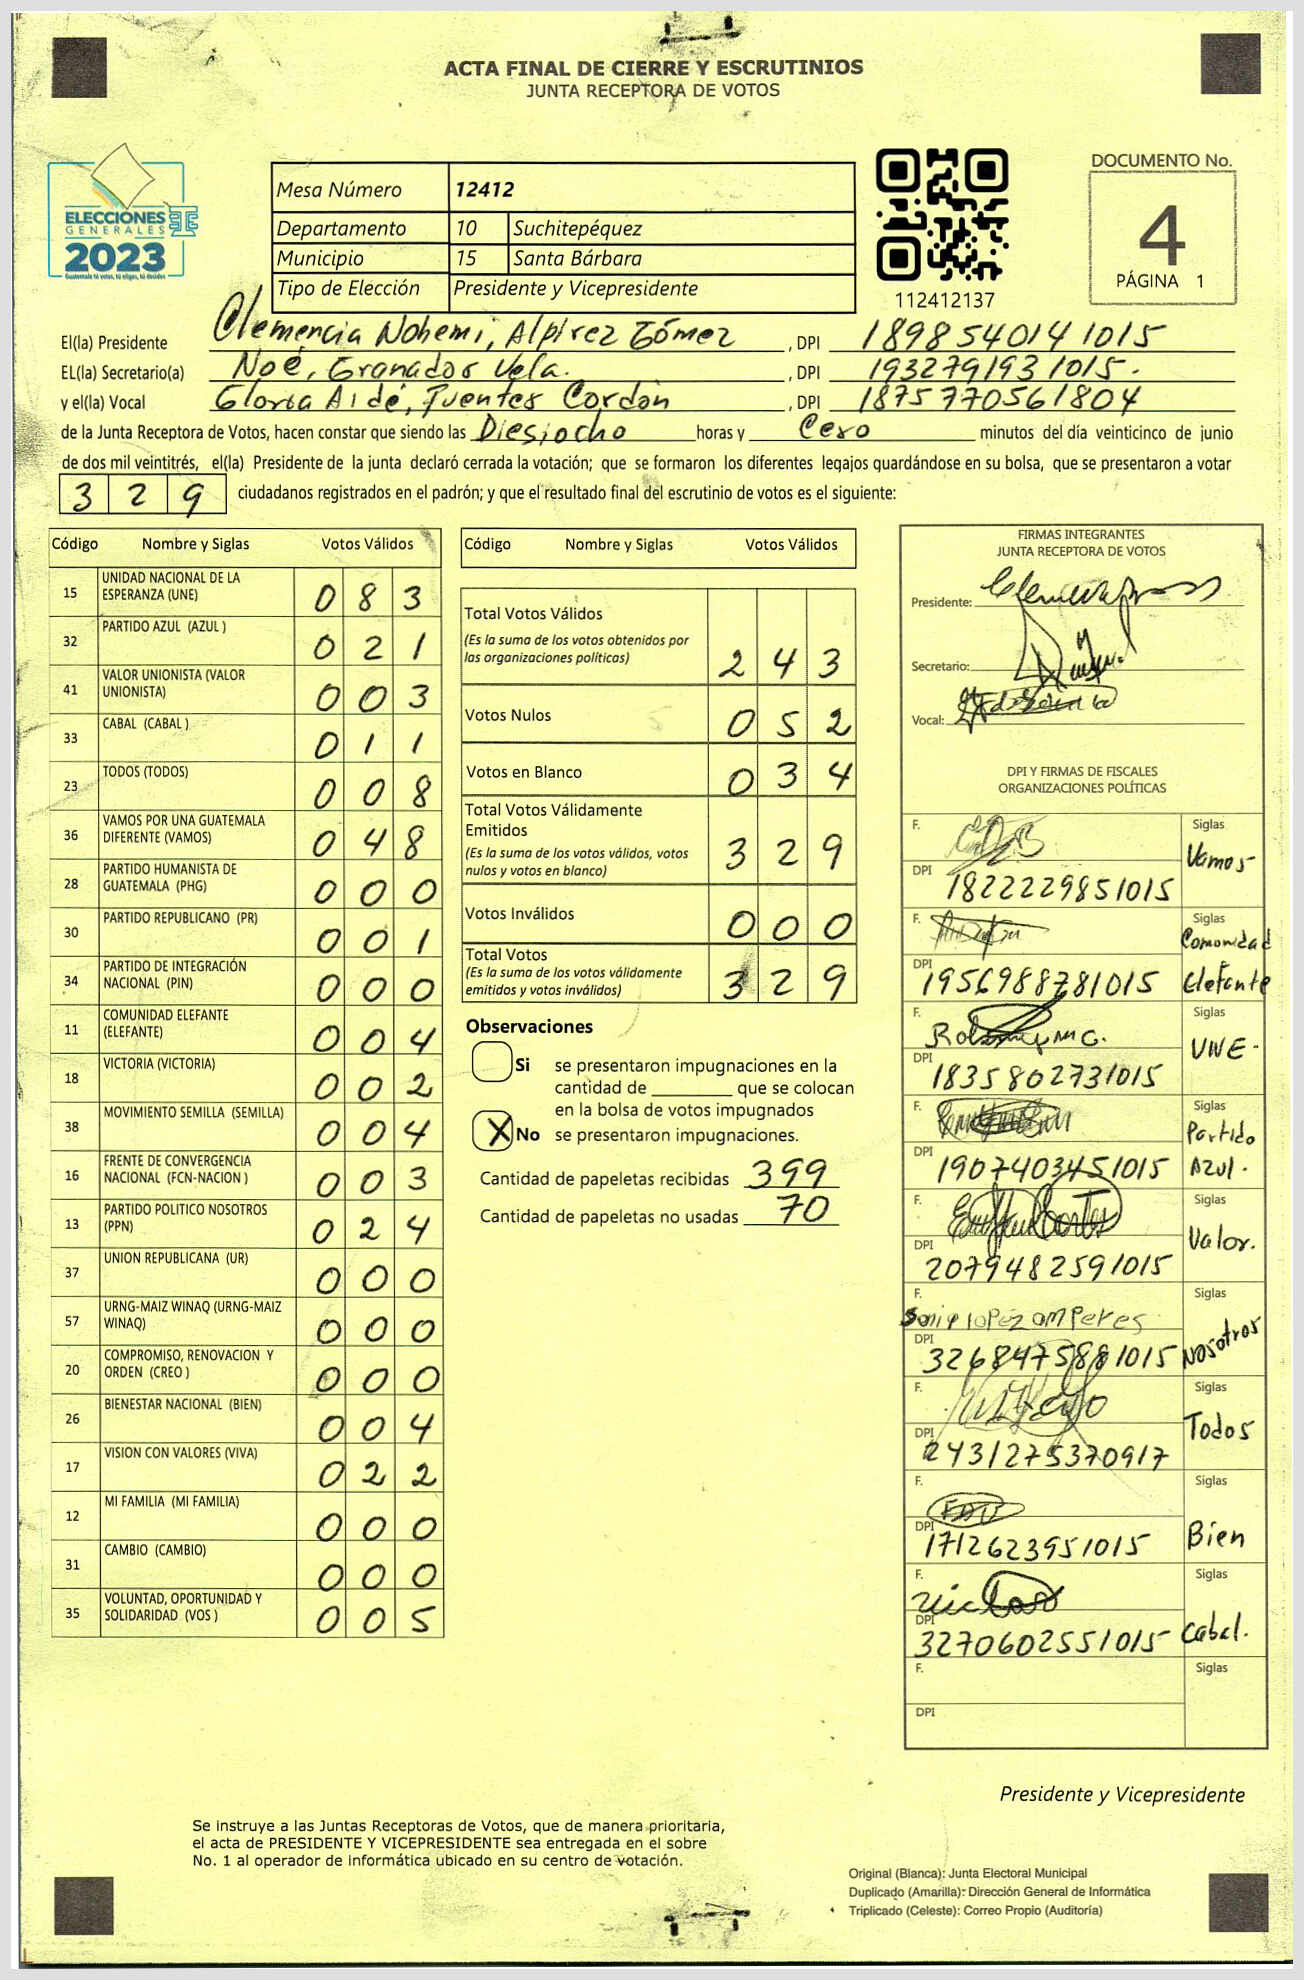 ACTA FINAL DE CIERRE Y ESCRUTINIOS
JUNTA RECEPTORA DE VOTOS
ELECCIONES
GENERALES
2023
Guatemala tú votas, tú eliges, tú decides
Mesa Número 12412
Departamento 10 Suchitepéquez
Municipio 15 Santa Bárbara
Tipo de Elección Presidente y Vicepresidente
112412137
DOCUMENTO No.
4
PÁGINA 1
El(la) Presidente Clemencia Nohemi, Alpirez Gómez, DPI 1898540141015
EL(la) Secretario(a) Noé, Granados Vela., DPI 1932791931015.
y el(la) Vocal Gloria Aidé, Fuentes Cordón, DPI 1875770561804
de la Junta Receptora de Votos, hacen constar que siendo las Diesiocho horas y Cero minutos del día veinticinco de junio
de dos mil veintitrés, el(la) Presidente de la junta declaró cerrada la votación; que se formaron los diferentes legajos guardándose en su bolsa, que se presentaron a votar
3 2 9 ciudadanos registrados en el padrón; y que el resultado final del escrutinio de votos es el siguiente:
Código Nombre y Siglas Votos Válidos
15 UNIDAD NACIONAL DE LA ESPERANZA (UNE) 0 8 3
32 PARTIDO AZUL (AZUL ) 0 2 1
41 VALOR UNIONISTA (VALOR UNIONISTA) 0 0 3
33 CABAL (CABAL ) 0 1 1
23 TODOS (TODOS) 0 0 8
36 VAMOS POR UNA GUATEMALA DIFERENTE (VAMOS) 0 4 8
28 PARTIDO HUMANISTA DE GUATEMALA (PHG) 0 0 0
30 PARTIDO REPUBLICANO (PR) 0 0 1
34 PARTIDO DE INTEGRACIÓN NACIONAL (PIN) 0 0 0
11 COMUNIDAD ELEFANTE (ELEFANTE) 0 0 4
18 VICTORIA (VICTORIA) 0 0 2
38 MOVIMIENTO SEMILLA (SEMILLA) 0 0 4
16 FRENTE DE CONVERGENCIA NACIONAL (FCN-NACION ) 0 0 3
13 PARTIDO POLITICO NOSOTROS (PPN) 0 2 4
37 UNION REPUBLICANA (UR) 0 0 0
57 URNG-MAIZ WINAQ (URNG-MAIZ WINAQ) 0 0 0
20 COMPROMISO, RENOVACION Y ORDEN (CREO ) 0 0 0
26 BIENESTAR NACIONAL (BIEN) 0 0 4
17 VISION CON VALORES (VIVA) 0 2 2
12 MI FAMILIA (MI FAMILIA) 0 0 0
31 CAMBIO (CAMBIO) 0 0 0
35 VOLUNTAD, OPORTUNIDAD Y SOLIDARIDAD (VOS ) 0 0 5
Código Nombre y Siglas Votos Válidos
Total Votos Válidos
(Es la suma de los votos obtenidos por
las organizaciones políticas) 2 4 3
Votos Nulos 0 5 2
Votos en Blanco 0 3 4
Total Votos Válidamente
Emitidos
(Es la suma de los votos válidos, votos
nulos y votos en blanco) 3 2 9
Votos Inválidos 0 0 0
Total Votos
(Es la suma de los votos válidamente
emitidos y votos inválidos) 3 2 9
Observaciones
Si se presentaron impugnaciones en la
cantidad de ________ que se colocan
en la bolsa de votos impugnados
X No se presentaron impugnaciones.
Cantidad de papeletas recibidas 399
Cantidad de papeletas no usadas 70
FIRMAS INTEGRANTES
JUNTA RECEPTORA DE VOTOS
Presidente:
Secretario:
Vocal:
DPI Y FIRMAS DE FISCALES
ORGANIZACIONES POLÍTICAS
F. Siglas
Vamos
DPI 1822229851015
F. Siglas
Comunidad
Elefante
DPI 1956988781015
F. Siglas
UNE.
DPI 1835802731015
F. Siglas
Partido
Azul.
DPI 1907403451015
F. Siglas
Valor.
DPI 2079482591015
F. Siglas
Nosotros
DPI 3268475881015
F. Siglas
Todos
DPI 2431275370917
F. Siglas
Bien
DPI 1712623951015
F. Siglas
Cabal.
DPI 3270602551015
F. Siglas
DPI
Presidente y Vicepresidente
Se instruye a las Juntas Receptoras de Votos, que de manera prioritaria,
el acta de PRESIDENTE Y VICEPRESIDENTE sea entregada en el sobre
No. 1 al operador de informática ubicado en su centro de votación.
Original (Blanca): Junta Electoral Municipal
Duplicado (Amarilla): Dirección General de Informática
Triplicado (Celeste): Correo Propio (Auditoría)